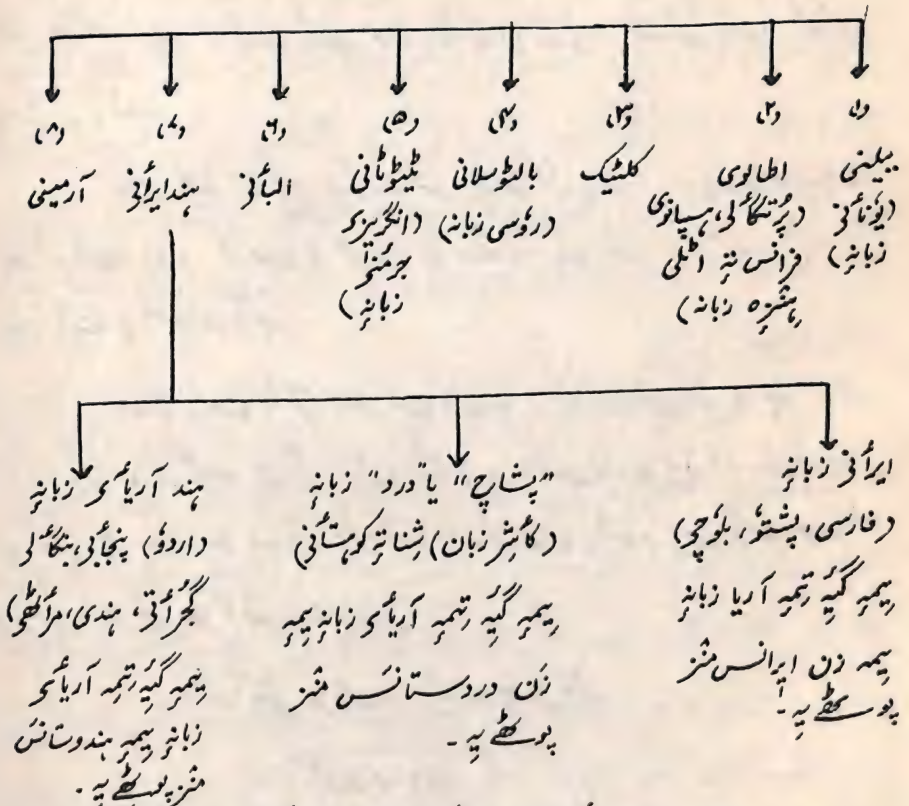 (۱)
ہیلینی
(یوٗنٲنؠ
زبانہٕ)
(۲)
اطالوی
(پُرتگٲلی، ہسپانوی
فرانس تہٕ اٹلی
ہٕنٛزہٕ زبانہٕ)
(۳)
کلٹیک
(۴)
بالٹوسلانی
(روٗسی زبانہٕ)
(۵)
ٹیٹوٹانی
(انگریزی
جرمنی
زبانہٕ)
(۶)
البٲنؠ
(۷)
ہند ایرٲنؠ
(۸)
آرمینی
ایرٲنؠ زبانہٕ
(فارسی، پشتوٗ، بلوٗچی)
یِمہٕ گٔیہٕ تِمہٕ آریا زبانہٕ
یِمہٕ زن ایرانس منٛز
پھۄلہِ۔
"پشاچ" یا "درد" زبانہٕ
(کٲشِر زبان) شِنا تہٕ کوہستٲنؠ)
یِمہٕ گٔیہٕ تِمہٕ آریٲیی زبانہٕ یِمہٕ
زَن دردستانَس منٛز
پھۄلہِ۔
ہند آریٲیی زبانہٕ
(اردوٗ) پنجٲبؠ، بنگٲلؠ
گُجرٲتؠ، ہندی، مرٲٹھی)
یِمہٕ گٔیہٕ تِمہٕ آریٲیی
زبانہٕ یِمہٕ ہندوستانَس
منٛز پھۄلہِ۔